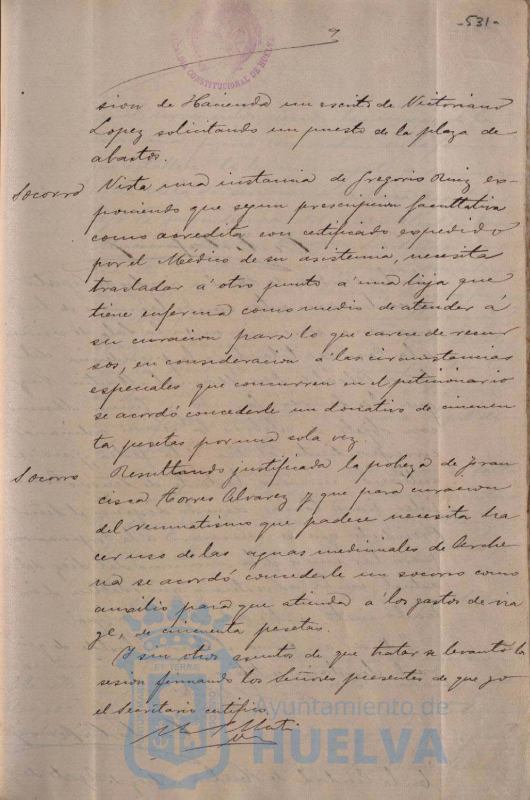 -531-
ALCALDIA CONSTITUCIONAL DE HUELVA
sion de Hacienda un escrito de Victoriano
Lopez solicitando un puesto de la plaza de
abastos.
Socorro Vista una instancia de Gregorio Ruiz ex-
poniendo que segun prescripcion facultativa
como acredita con certificado expedido
por el Médico de su asistencia, necesita
trasladar á otro punto á una hija que
tiene enferma como medio de atender á
su curacion para lo que carece de recur
sos, en consideracion á las circunstancias
especiales que concurren en el peticionario
se acordó concederle un donativo de cincuen
ta pesetas por una sola vez.
Socorro Resultando justificada la pobreza de Fran
cisca Torres Alvarez y que para curacion
del reumatismo que padece necesita ha
cer uso de las aguas medicinales de Arche
na se acordó concederle un socorro como
auxilio para que atienda á los gastos de via
ge, de cincuenta pesetas.
Y sin otros asuntos de que tratar se levantó la
sesion firmando los Señores presentes de que yo
el Secretario certifico.
Ayuntamiento de
HUELVA